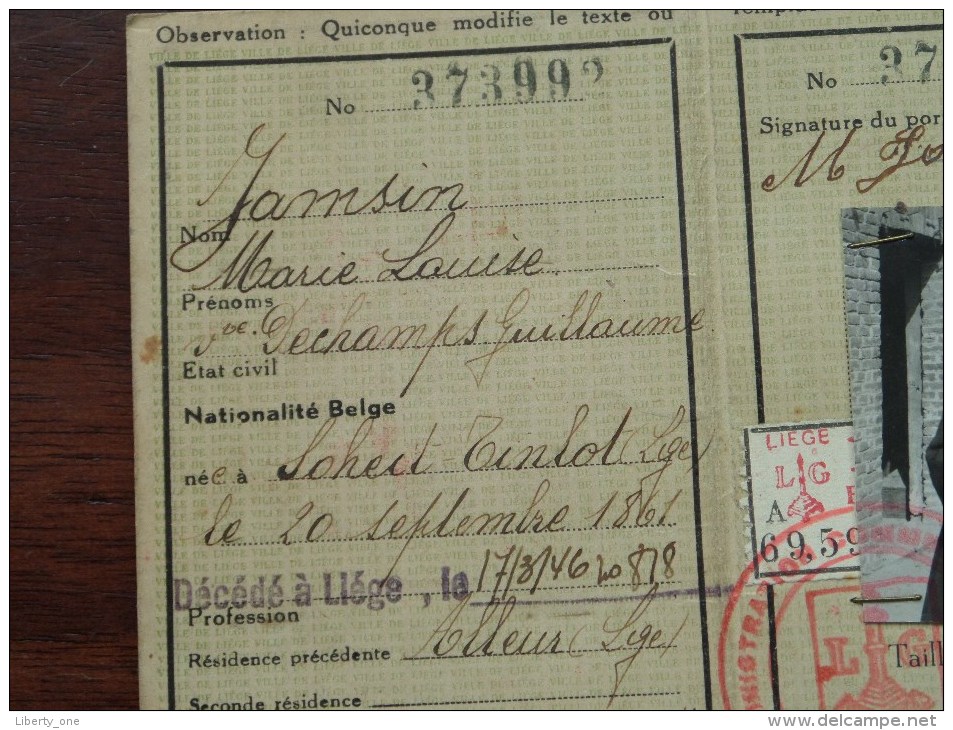 Observation : Quiconque modifie le texte ou
No 373992
Jamsin
Nom
Marie Louise
Prénoms
Vve. Dechamps Guillaume
Etat civil
Nationalité Belge
née à Soheit-Tinlot (Lge)
le 20 septembre 1861
Décédé à Liége, le 17/3/46 no 878
Profession
Résidence précédente Alleur (Lge)
Seconde résidence
No 37
Signature du por
M Ja
LIEGE
L G
A
69,59
L G
Taill
Liberty_one
http://www.delcampe.net